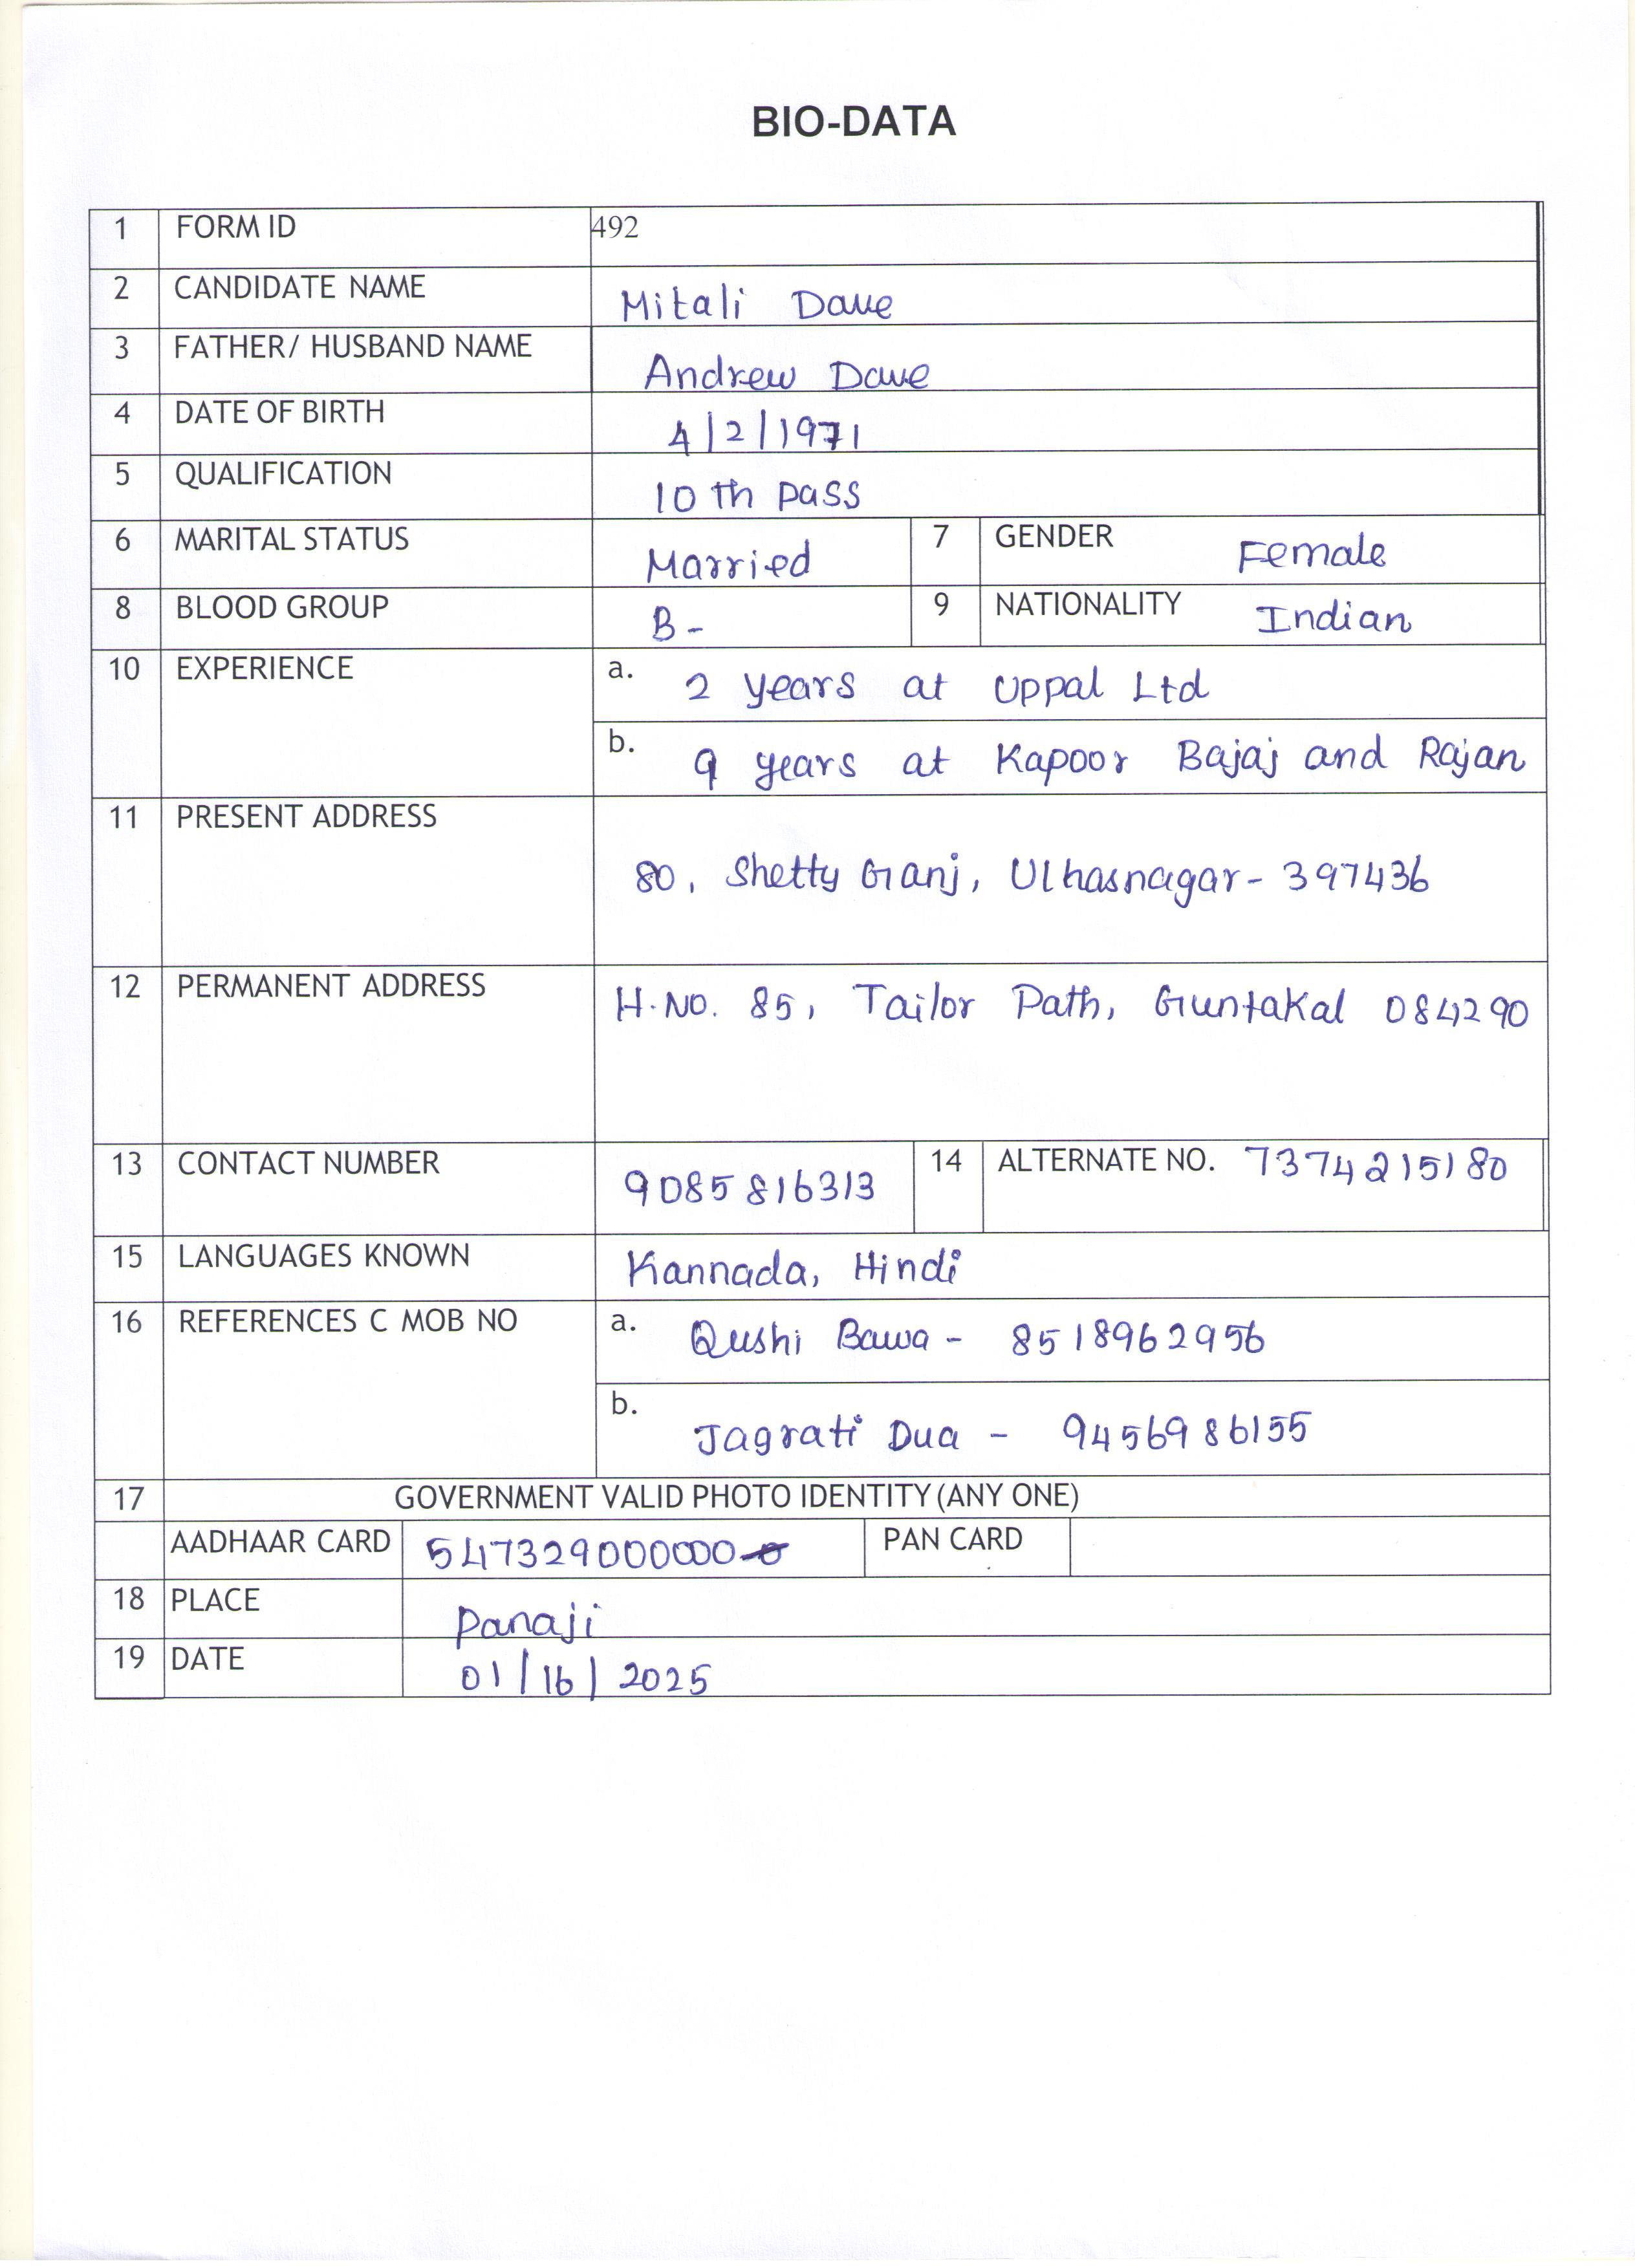 BIO-DATA
1 FORM ID 492
2 CANDIDATE NAME Mitali Dave
3 FATHER/ HUSBAND NAME Andrew Dave
4 DATE OF BIRTH 4/2/1971
5 QUALIFICATION 10 th pass
6 MARITAL STATUS Married 7 GENDER Female
8 BLOOD GROUP B- 9 NATIONALITY Indian
10 EXPERIENCE a. 2 years at Uppal Ltd
b. 9 years at Kapoor Bajaj and Rajan
11 PRESENT ADDRESS
80, Shetty Ganj, Ulhasnagar- 397436
12 PERMANENT ADDRESS H.No. 85, Tailor Path, Guntakal 084290
13 CONTACT NUMBER 9085816313 14 ALTERNATE NO. 7374215180
15 LANGUAGES KNOWN Kannada, Hindi
16 REFERENCES C MOB NO a. Qushi Bawa - 8518962956
b. Jagrati Dua - 9456986155
17 GOVERNMENT VALID PHOTO IDENTITY(ANY ONE)
AADHAAR CARD 547329000000 PAN CARD
18 PLACE Panaji
19 DATE 01/16/2025